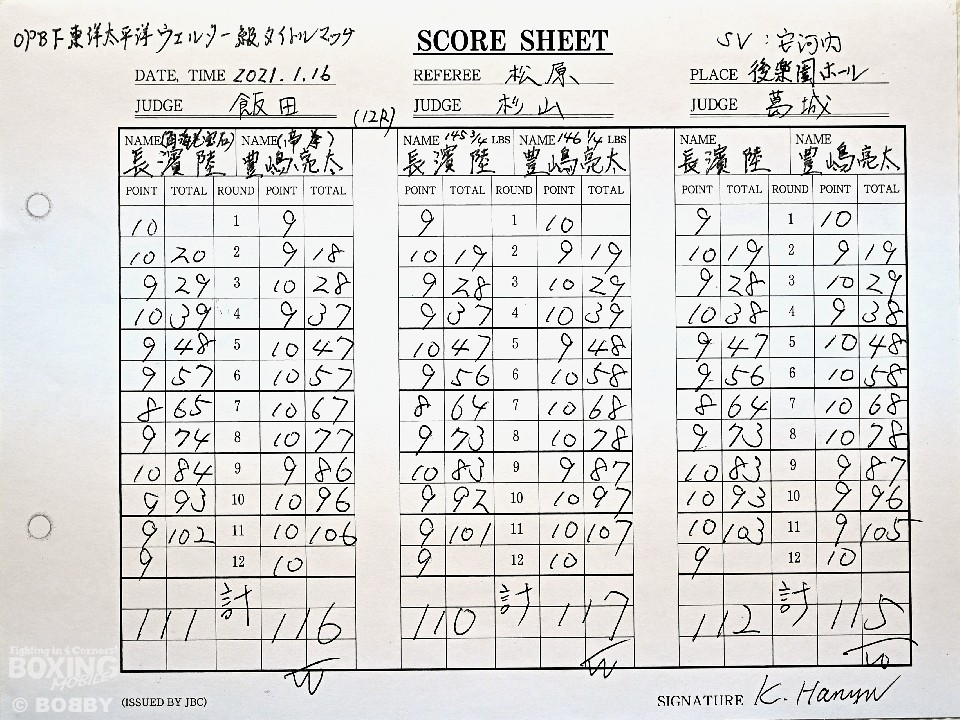 OPBF東洋太平洋ウェルター級タイトルマッチ
SCORE SHEET
SV:安河内
DATE, TIME 2021.1.16 REFEREE 松原 PLACE 後楽園ホール
JUDGE 飯田 JUDGE 杉山 JUDGE 葛城
(12R)
NAME NAME (帝拳) NAME 145 3/4 LBS NAME 146 1/4 LBS NAME NAME
長濱陸 豊嶋亮太 長濱陸 豊嶋亮太 長濱陸 豊嶋亮太
POINT TOTAL ROUND POINT TOTAL POINT TOTAL ROUND POINT TOTAL POINT TOTAL ROUND POINT TOTAL
10 1 9 9 1 10 9 1 10
10 20 2 9 18 10 19 2 9 19 10 19 2 9 19
9 29 3 10 28 9 28 3 10 29 9 28 3 10 29
10 39 4 9 37 9 37 4 10 39 10 38 4 9 38
9 48 5 10 47 10 47 5 9 48 9 47 5 10 48
9 57 6 10 57 9 56 6 10 58 9 56 6 10 58
8 65 7 10 67 8 64 7 10 68 8 64 7 10 68
9 74 8 10 77 9 73 8 10 78 9 73 8 10 78
10 84 9 9 86 10 83 9 9 87 10 83 9 9 87
9 93 10 10 96 9 92 10 10 97 10 93 10 9 96
9 102 11 10 106 9 101 11 10 107 10 103 11 9 105
9 12 10 9 12 10 9 12 10
111 計 116 110 計 117 112 計 115
W W W
Fighting in 4 Corners!
BOXING
MOBILE
© BOBBY
(ISSUED BY JBC)
SIGNATURE K. Hanyu